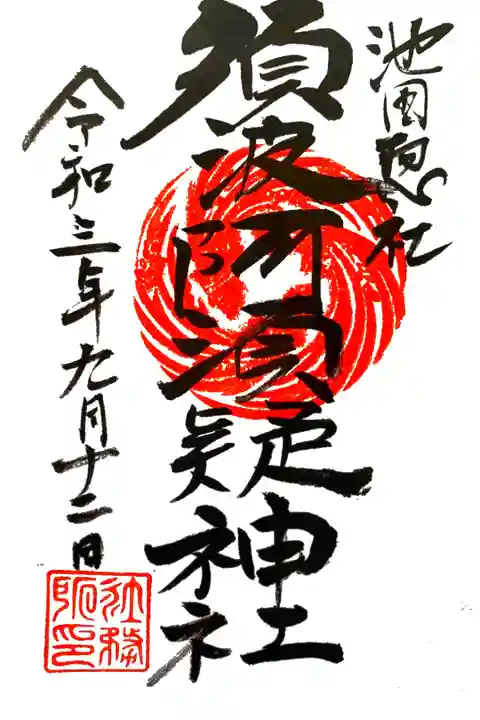 池田惣社
須波阿湏疑神社
令和三年九月十二日
社務所印